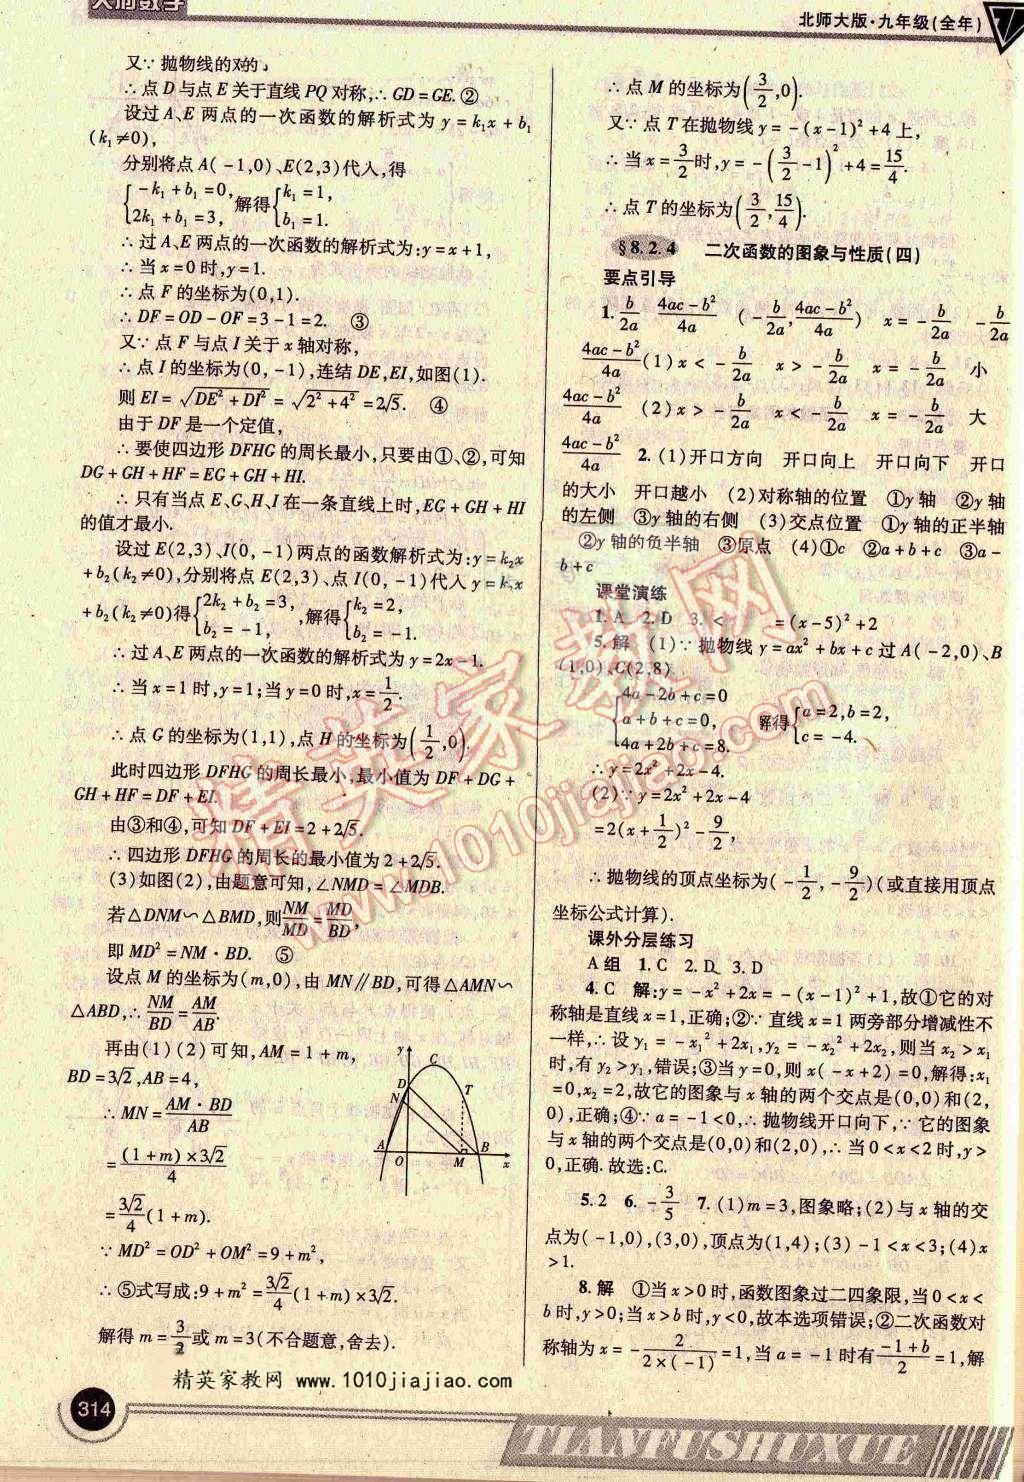 北师大版·九年级(全年)
又∵抛物线的对的
∴点D与点E关于直线PQ对称,∴GD=GE.②
设过A、E两点的一次函数的解析式为y=k₁x+b₁
(k₁≠0),
分别将点A(-1,0)、E(2,3)代入,得
{-k₁+b₁=0, 2k₁+b₁=3, 解得{k₁=1, b₁=1.
∴过A、E两点的一次函数的解析式为:y=x+1,
∴当x=0时,y=1.
∴点F的坐标为(0,1).
∴DF=OD-OF=3-1=2. ③
又∵点F与点I关于x轴对称,
∴点I的坐标为(0,-1),连结DE,EI,如图(1).
则EI=√(DE²+DI²)=√(2²+4²)=2√5. ④
由于DF是一个定值,
∴要使四边形DFHG的周长最小,只要由①、②,可知
DG+GH+HF=EG+GH+HI.
∴只有当点E、G、H、I在一条直线上时,EG+GH+HI
的值才最小.
设过E(2,3)、I(0,-1)两点的函数解析式为:y=k₂x
+b₂(k₂≠0),分别将点E(2,3)、点I(0,-1)代入y=k₂x
+b₂(k₂≠0)得{2k₂+b₂=3, b₂=-1, 解得{k₂=2, b₂=-1.
∴过A、E两点的一次函数的解析式为y=2x-1.
∴当x=1时,y=1;当y=0时,x=1/2.
∴点G的坐标为(1,1),点H的坐标为(1/2,0).
此时四边形DFHG的周长最小,最小值为DF+DG+
GH+HF=DF+EI.
由③和④,可知DF+EI=2+2√5.
∴四边形DFHG的周长的最小值为2+2√5.
(3)如图(2),由题意可知,∠NMD=∠MDB.
若△DNM∽△BMD,则NM/MD=MD/BD,
即MD²=NM·BD. ⑤
设点M的坐标为(m,0),由MN∥BD,可得△AMN∽
△ABD,∴NM/BD=AM/AB.
再由(1)(2)可知,AM=1+m,
BD=3√2,AB=4,
∴MN=AM·BD/AB
=(1+m)×3√2/4
=3√2/4(1+m).
∵MD²=OD²+OM²=9+m²,
∴⑤式写成:9+m²=3√2/4(1+m)×3√2.
解得m=3/2或m=3(不合题意,舍去).
y C D N T A O M B x
∴点M的坐标为(3/2,0).
又∵点T在抛物线y=-(x-1)²+4上,
∴当x=3/2时,y=-(3/2-1)²+4=15/4.
∴点T的坐标为(3/2,15/4).
§8.2.4 二次函数的图象与性质(四)
要点引导
1. b/2a (4ac-b²)/4a (-b/2a,(4ac-b²)/4a) x=-b/2a -b/2a
(4ac-b²)/4a (1)x<-b/2a x>-b/2a x=-b/2a 小
(4ac-b²)/4a (2)x>-b/2a x<-b/2a x=-b/2a 大
(4ac-b²)/4a 2.(1)开口方向 开口向上 开口向下 开口
的大小 开口越小 (2)对称轴的位置 ①y轴 ②y轴
的左侧 ③y轴的右侧 (3)交点位置 ①y轴的正半轴
②y轴的负半轴 ③原点 (4)①c ②a+b+c ③a-
b+c
课堂演练
1. A 2. D 3. < =(x-5)²+2
5. 解 (1)∵抛物线y=ax²+bx+c过A(-2,0)、B
(1,0)、C(2,8)
{4a-2b+c=0 a+b+c=0, 4a+2b+c=8. 解得{a=2,b=2, c=-4.
∴y=2x²+2x-4.
(2)∵y=2x²+2x-4
=2(x+1/2)²-9/2,
∴抛物线的顶点坐标为(-1/2,-9/2)(或直接用顶点
坐标公式计算).
课外分层练习
A组 1. C 2. D 3. D
4. C 解:y=-x²+2x=-(x-1)²+1,故①它的对
称轴是直线x=1,正确;②∵直线x=1两旁部分增减性不
一样,∴设y₁=-x₁²+2x₁,y₂=-x₂²+2x₂,则当x₂>x₁
时,有y₂>y₁,错误;③当y=0,则x(-x+2)=0,解得:x₁
=0,x₂=2,故它的图象与x轴的两个交点是(0,0)和(2,
0),正确;④∵a=-1<0,∴抛物线开口向下,∵它的图象
与x轴的两个交点是(0,0)和(2,0),∴当0<x<2时,y>
0,正确.故选:C.
5. 2 6. -3/5 7. (1)m=3,图象略;(2)与x轴的交
点为(-1,0),(3,0),顶点为(1,4);(3)-1<x<3;(4)x
>1.
8. 解 ①当x>0时,函数图象过二四象限,当0<x<
b时,y>0;当x>b时,y<0,故本选项错误;②二次函数对
称轴为x=-2/(2×(-1))=1,当a=-1时有(-1+b)/2=1,解
精英家教网
www.1010jiajiao.com
精英家教网 www.1010jiajiao.com
314
TIANFUSHUXUE